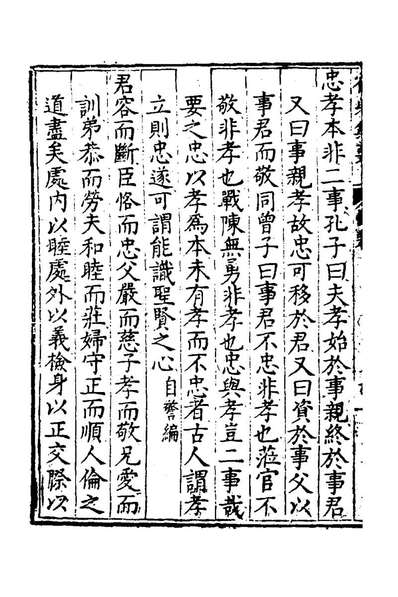 忠孝本非二事孔子曰夫孝始於事親終於事君
又曰事親孝故忠可移於君又曰資於事父以
事君而敬同曾子曰事君不忠非孝也蒞官不
敬非孝也戰陳無勇非孝也忠與孝豈二事哉
要之忠以孝爲本未有孝而不忠者古人謂孝
立則忠遂可謂能識聖賢之心自警編
君容而斷臣恪而忠父嚴而慈子孝而敬兄愛而
訓弟恭而勞夫和睦而莊婦守正而順人倫之
道盡矣處內以睦處外以義檢身以正交際以